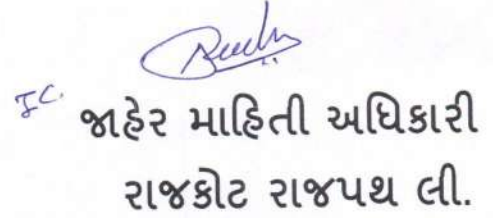 I.C. જાહેર માહિતી અધિકારી
રાજકોટ રાજપથ લી.